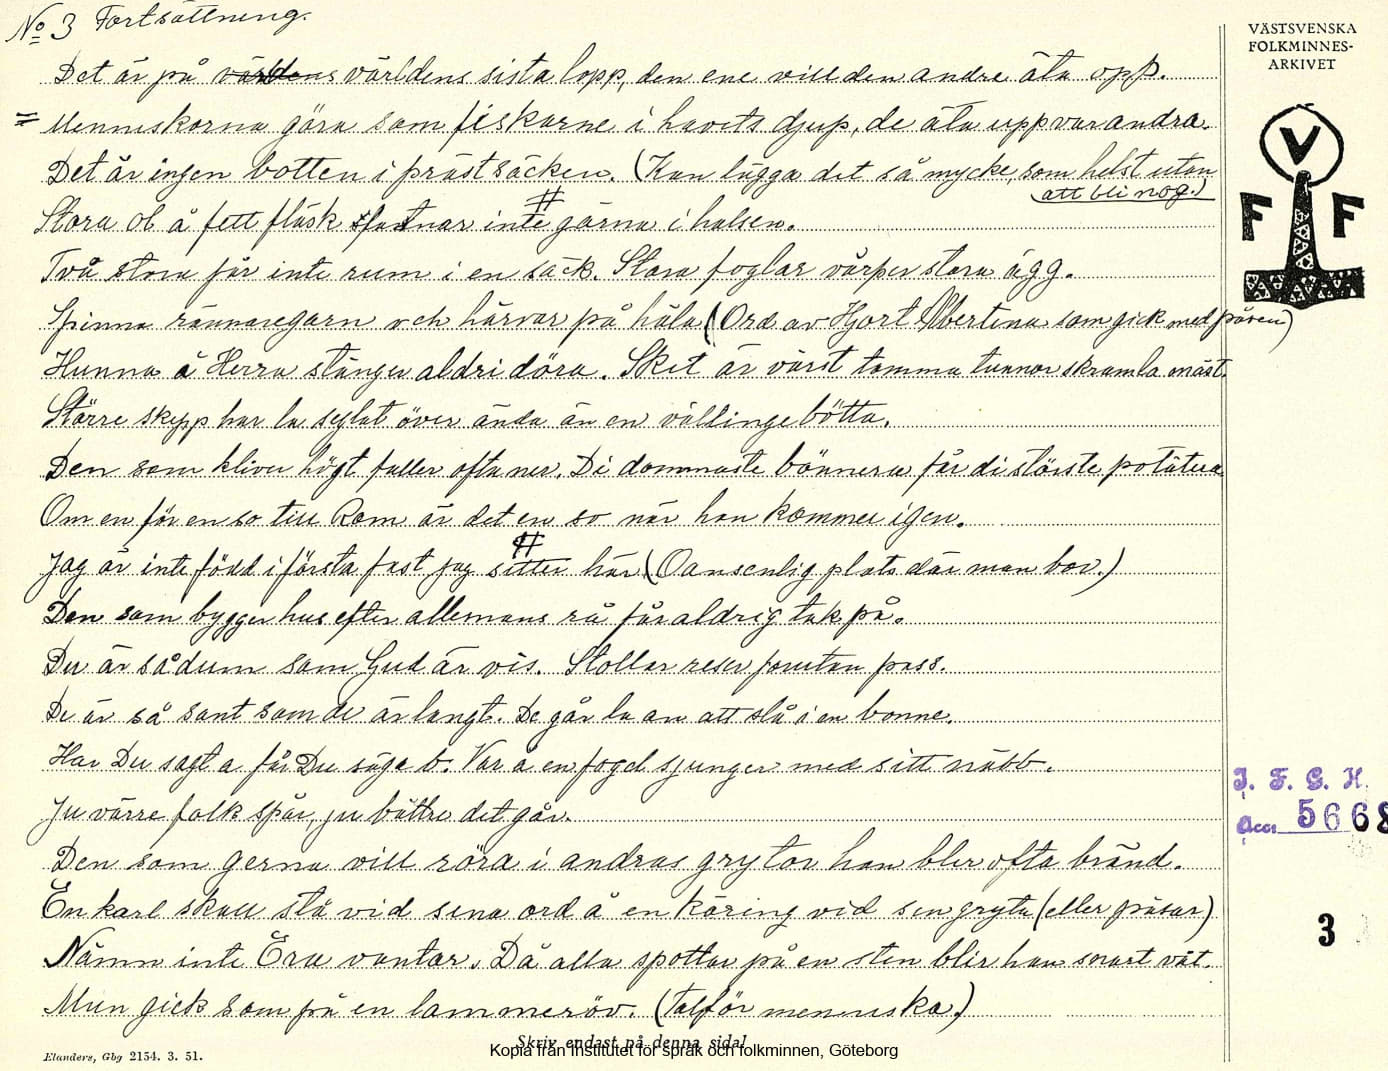 No 3 Fortsättning.
Det är på världens världens sista lopp, den ene vill den andre äta opp.
= Menniskorna göra som fiskarne i havets djup, de äta upp varandra.
Det är ingen botten i prästsäcken. (Kan lägga det så mycke, som helst utan
att bli nog.)
Stora ol å fett fläsk fastnar inte gärna i halsen.
Två stora får inte rum i en säck. Stora foglar värper stora ägg.
Spinna rännaregarn och härvar på häla (Ord av Hjort Albertina som gick med påsen)
Hunna å Herra stänger aldri döra. Skit är värst tomma tunnor skramla mäst.
Större skepp har la seglat över ända än en vällingebötta.
Den som kliver högt faller ofta ner. Di dommaste bönnera får di störste potätera
Om en för en so till Rom är det en so när han kommer igen.
Jag är inte född i första fast jag sitter här (Oansenlig plats där man bor.)
Den som bygger hus efter allemans rå får aldrig tak på.
Du är så dum som Gud är vis. Stollar reser förutan pass.
De är så sant som de är langt. De går la an att slå i en bonne.
Har Du sagt a får Du säga b. Var å en fogel sjunger med sitt näbb.
Ju värre folk spår, ju bättre det går.
Den som gerna vill röra i andras grytor han blir ofta bränd.
En karl skall stå vid sina ord å en käring vid sin gryta (eller påsar)
Nämn inte Era vantar. Då alla spottar på en sten blir han snart våt.
Mun gick som på en lammeröv. (Talför menniska.)
VÄSTSVENSKA
FOLKMINNES-
ARKIVET
V
F F
I. F. G. H.
Acc. 5668
3
Skriv endast på denna sida!
Elanders, Gbg 2154. 3. 51.
Kopia från Institutet för språk och folkminnen, Göteborg